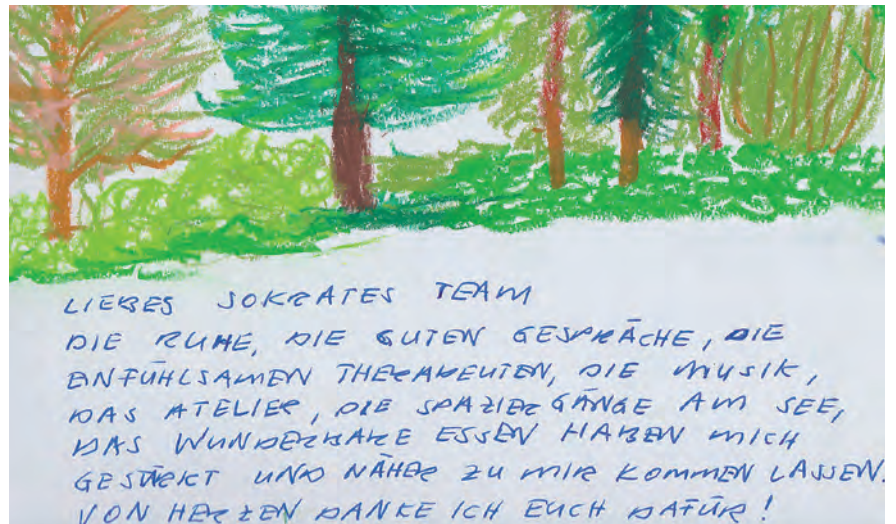 LIEBES SOKRATES TEAM
DIE RUHE, DIE GUTEN GESPRÄCHE, DIE
EINFÜHLSAMEN THERAPEUTEN, DIE MUSIK,
DAS ATELIER, DIE SPAZIERGÄNGE AM SEE,
DAS WUNDERBARE ESSEN HABEN MICH
GESTÄRKT UND NÄHER ZU MIR KOMMEN LASSEN.
VON HERZEN DANKE ICH EUCH DAFÜR!